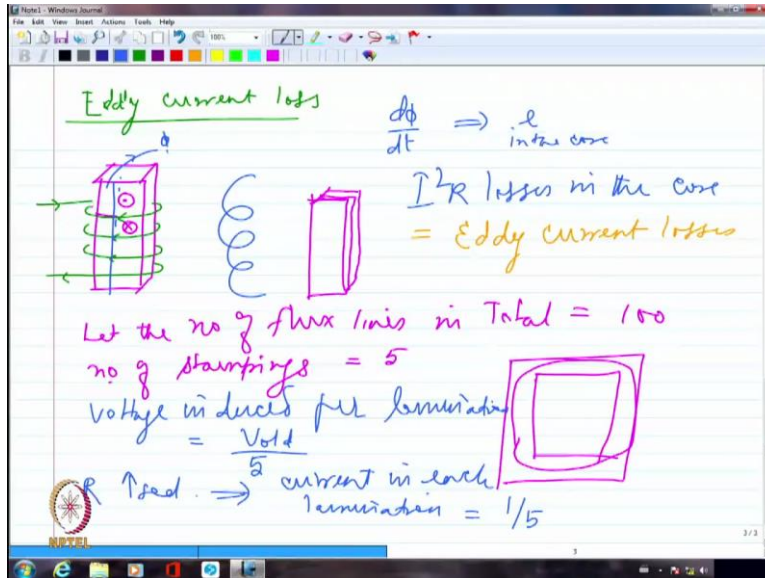 Note1 - Windows Journal
File Edit View Insert Actions Tools Help
100%
B I
Eddy current loss
dϕ/dt ⇒ e
in the core
ϕ
I²R losses in the core
= Eddy current losses
Let the no of flux lines in Total = 100
no of stampings = 5
Voltage induced per lamination
= Vold/5
R ↑sed. ⇒ current in each
lamination = 1/5
NPTEL
3/3
3